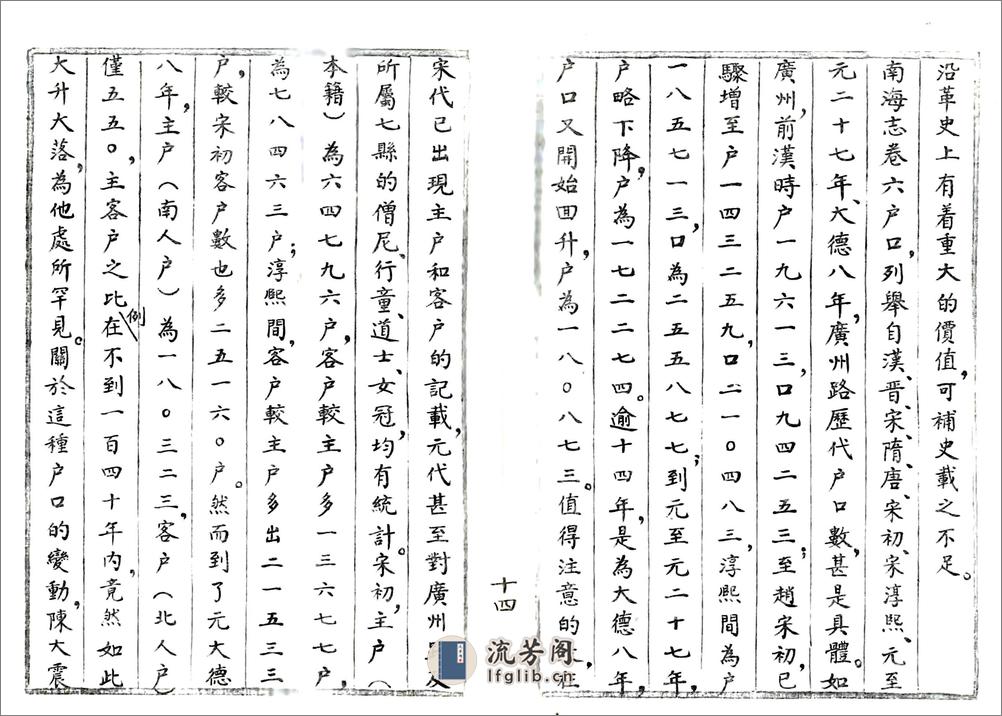 沿革史上有着重大的價值,可補史載之不足。
南海志卷六户口,列舉自漢、晋、宋、隋、唐、宋初、宋淳熙、元至
元二十七年、大德八年,廣州路歷代户口數,甚是具體。如
廣州,前漢時户一九六一三,口九四二五三;至趙宋初,已
驟增至户一四三二五九,口二一〇四八三,淳熙間為户
一八五七一三,口為二五五八七七;到元至元二十七年,
户略下降,户為一七二二七四。逾十四年,是為大德八年,
户口又開始回升,户為一八〇八七三。值得注意的,在
十四
宋代已出現主户和客户的記載,元代甚至對廣州及
所屬七縣的僧尼、行童、道士、女冠,均有統計。宋初,主户(
本籍)為六四七九六户,客户較主户多一三六七七户,
為七八四六三户;淳熙間,客户較主户多出二一五三三
户,較宋初客户數也多二五一六〇户。然而到了元大德
八年,主户(南人户)為一八〇三二三,客户(北人户)
僅五五〇,主客户之比例在不到一百四十年内,竟然如此
大升大落,為他處所罕見。關於這種户口的變動,陳大震
流芳阁
lfglib.cn